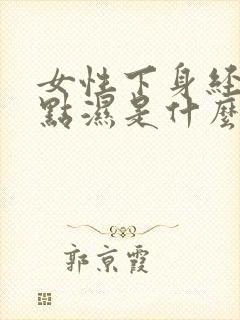 女性下身經
點濕是什麼
郭京霞